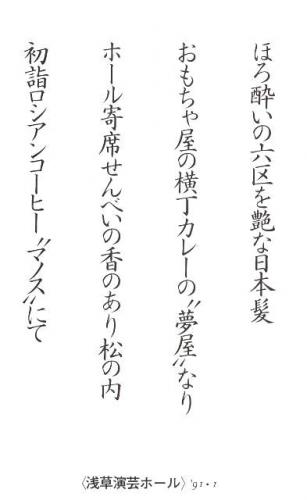 ほろ酔いの六区を艶な日本髪
おもちゃ屋の横丁カレーの〝夢屋〟なり
ホール寄席せんべいの香のあり松の内
初詣ロシアンコーヒー〝マノス〟にて
〈浅草演芸ホール〉'91・1